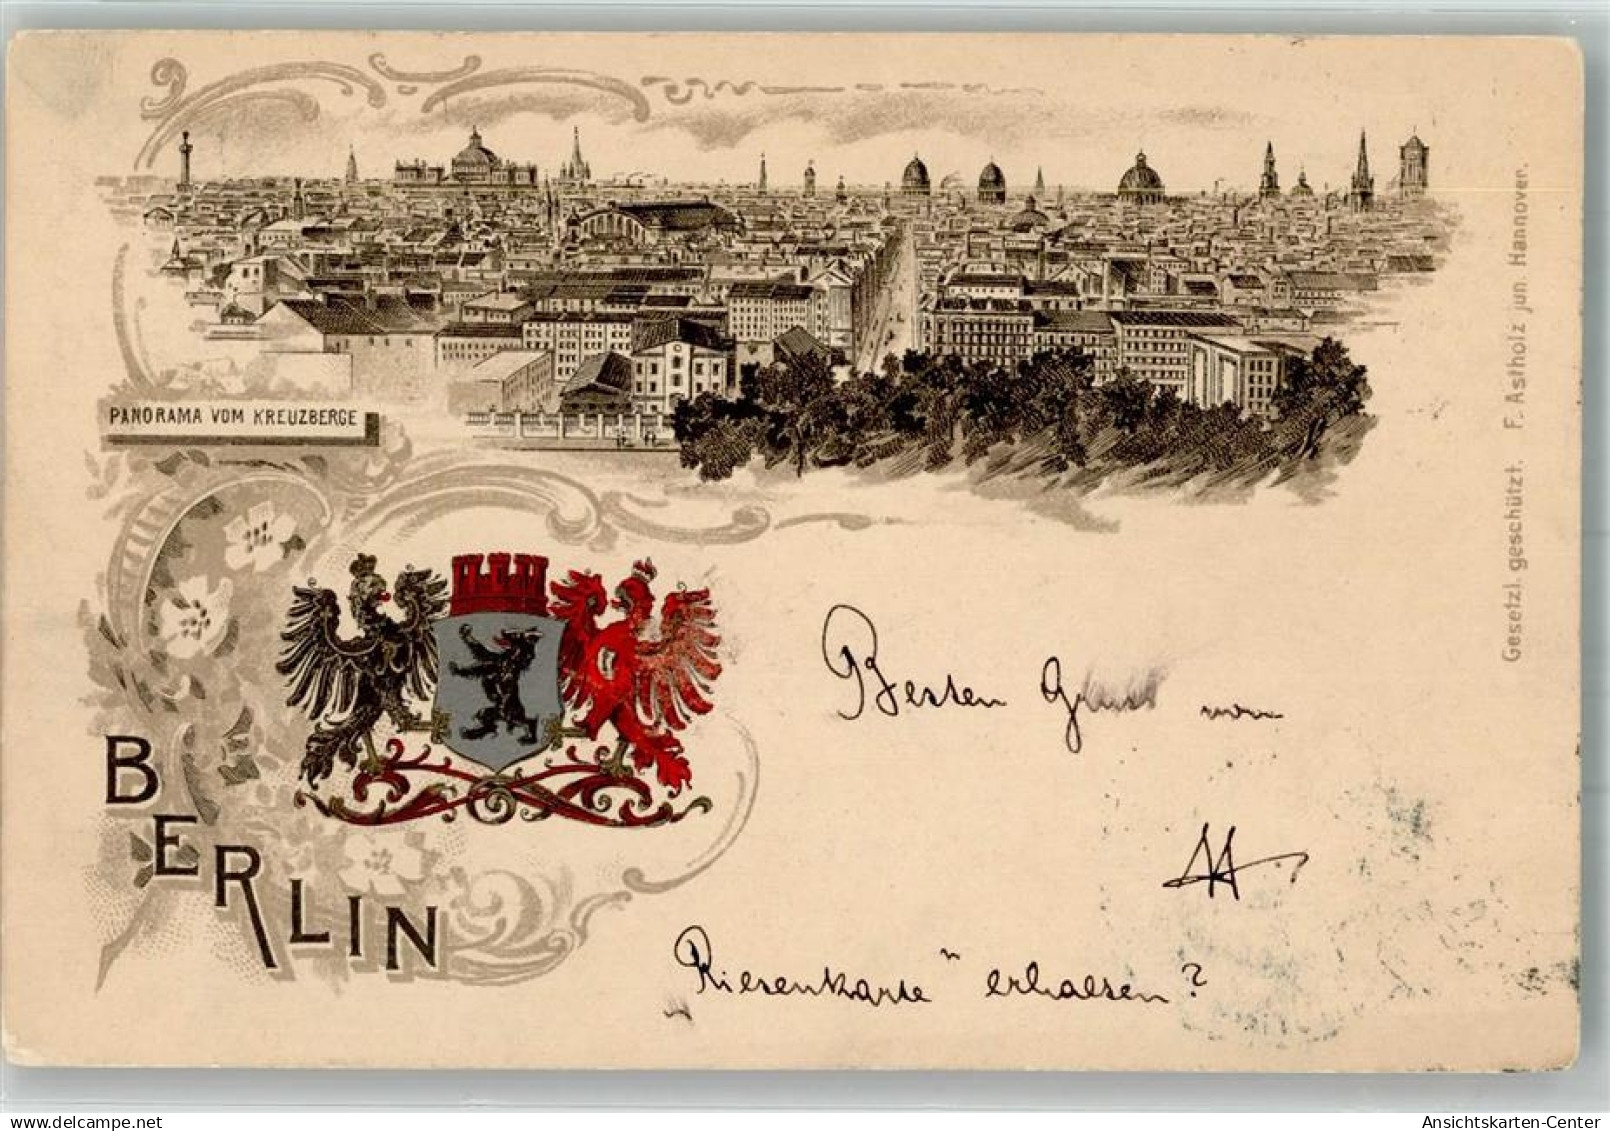 PANORAMA VOM KREUZBERGE
Gesetzl. geschützt. F. Astholz jun. Hannover.
BERLIN
Besten Gruss von
„Riesenkarte" erhalten?
www.delcampe.net
tpprince
Ansichtskarten-Center